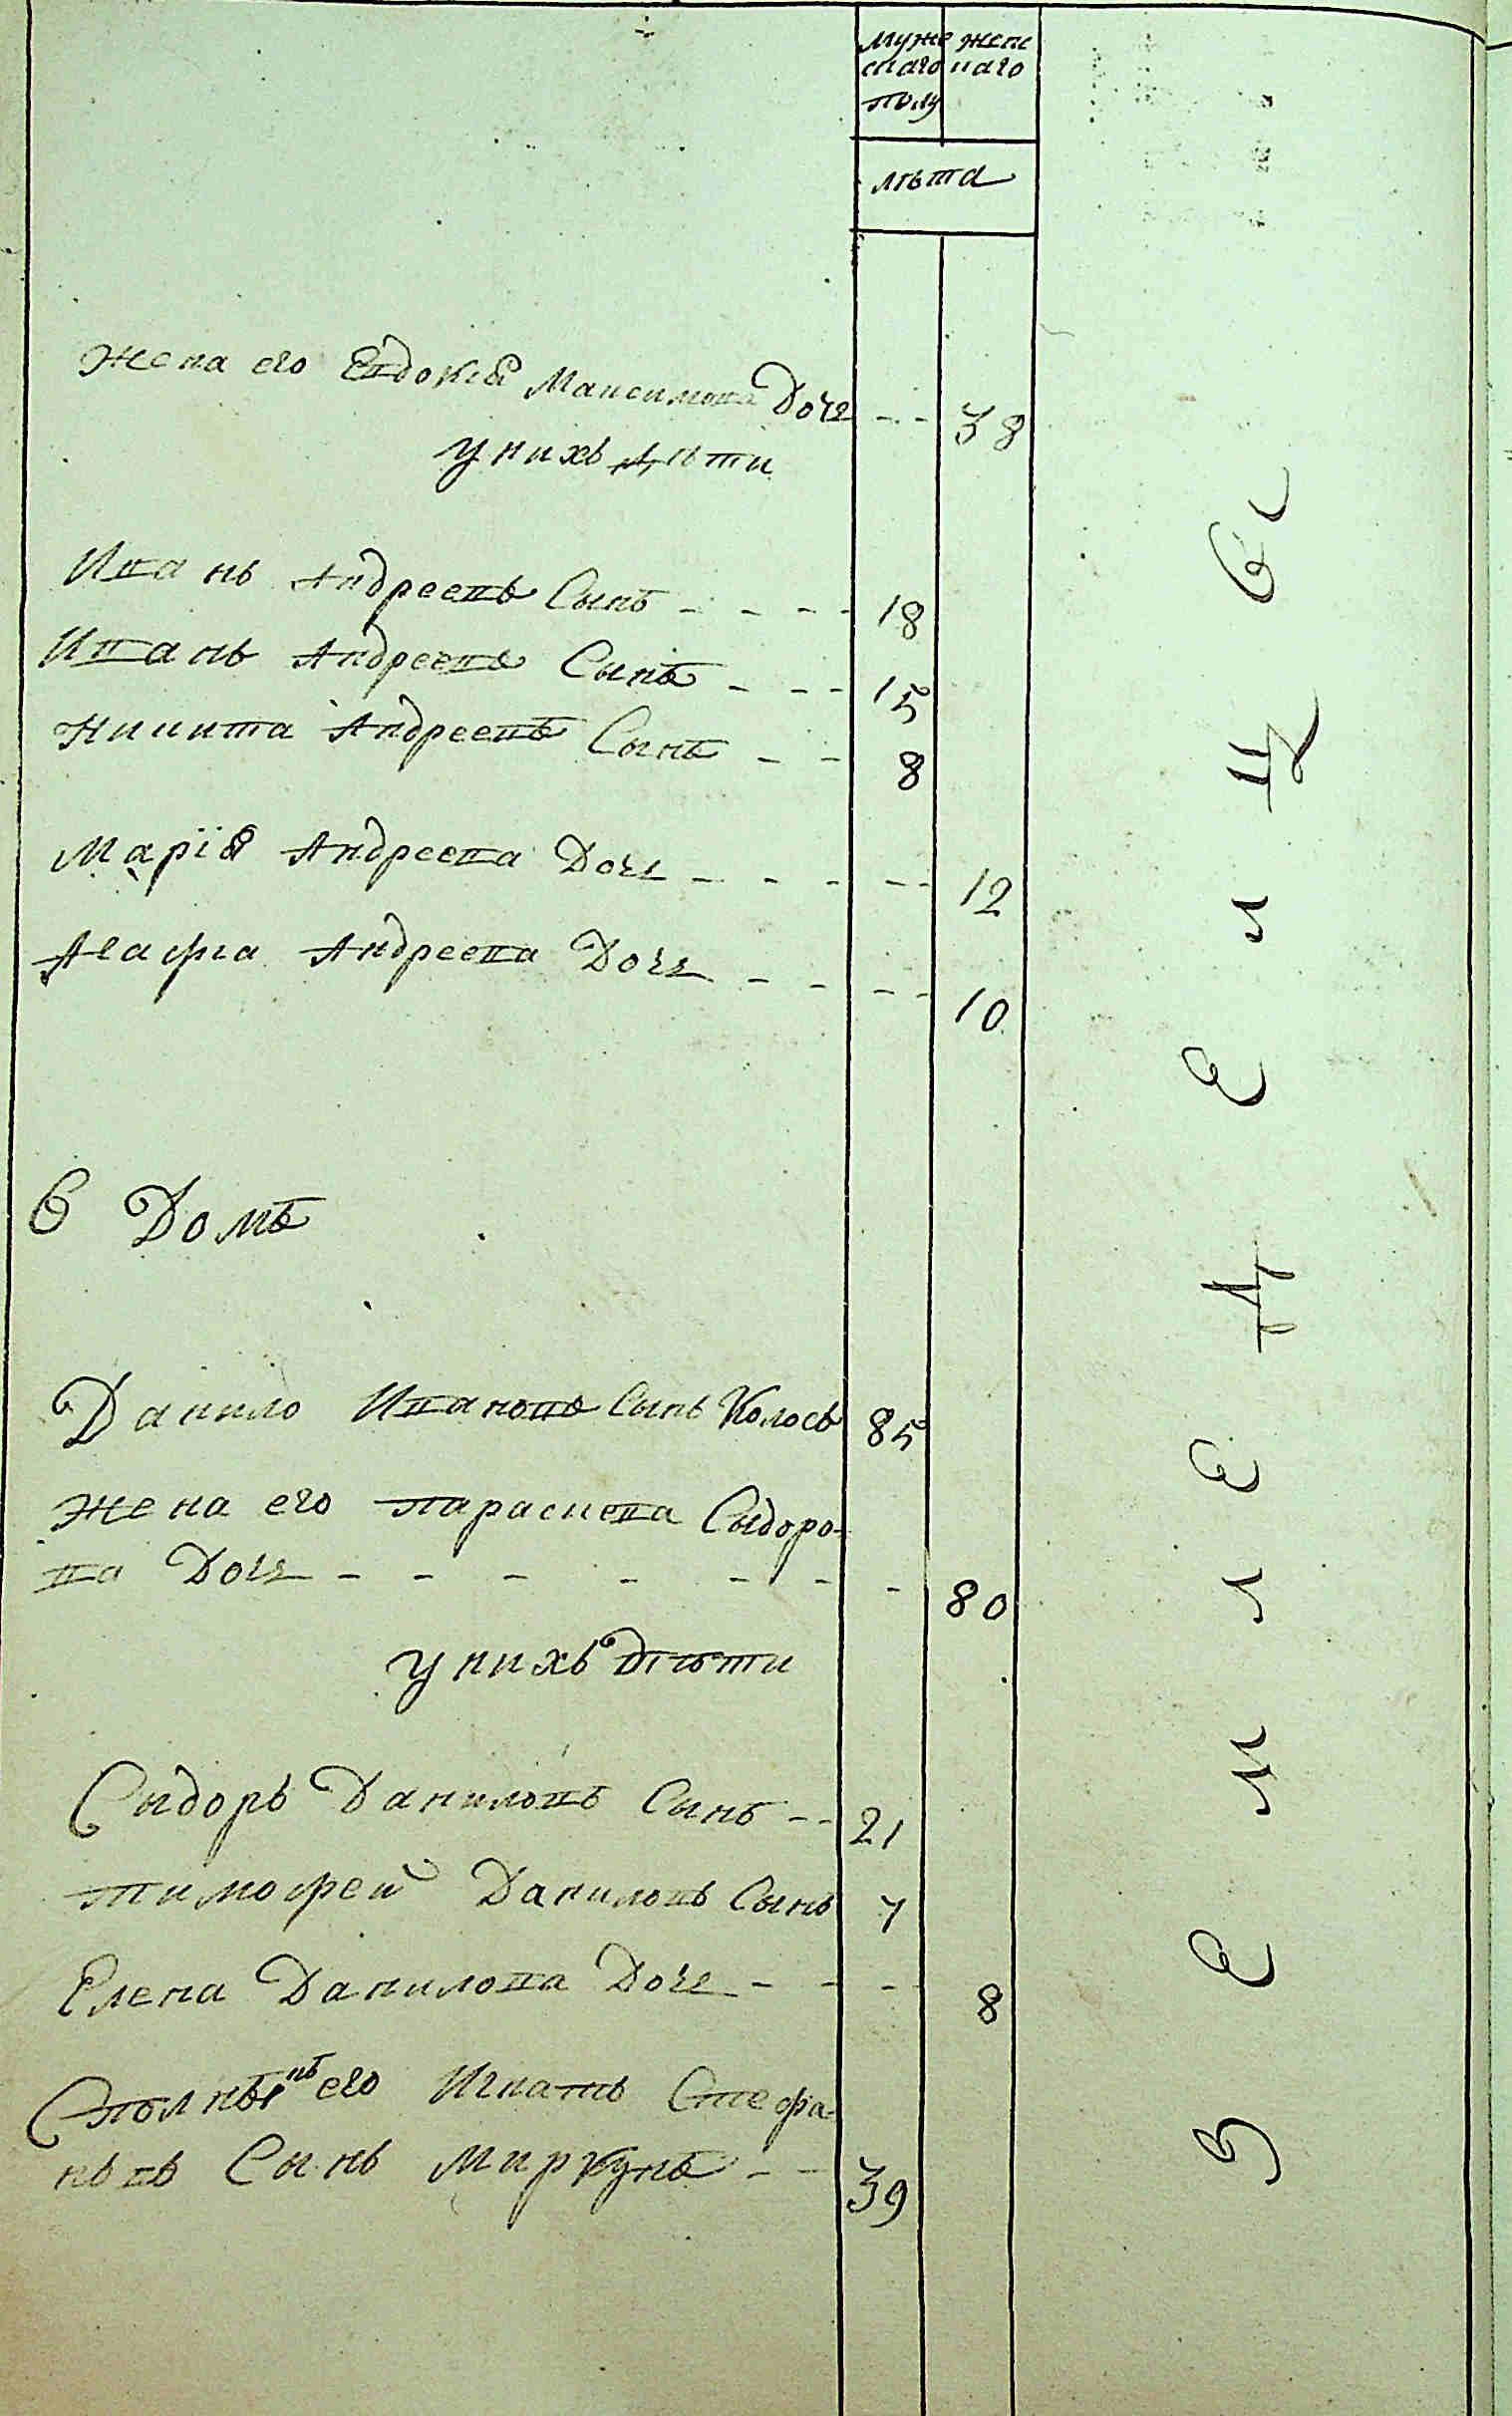 муже жене
скаго каго
полу
лѣта
жена его Евдокія Максимова Дочь - - 38
у нихъ дѣти
Иванъ Андреевъ Сынъ - - - - 18
Иванъ Андреевъ Сынъ - - - 15
Никита Андреевъ Сынъ - - 8
Марія Андреева Дочь - - - - - 12
Агафиа Андреева Дочь - - - - 10
6 Домъ
Данило Ивановъ Сынъ Колосъ 85
жена его параскева Сыдоро-
ва Дочь - - - - - - - 80
у нихъ дѣти
Сыдоръ Даниловъ Сынъ - - 21
тимофей Даниловъ Сынъ 7
Елена Данилова Дочь - - - 8
его Игнатъ Стефа-
новъ Сынъ Миркунъ - - 39
ЗЕМЛЕДЕЛЦЫ